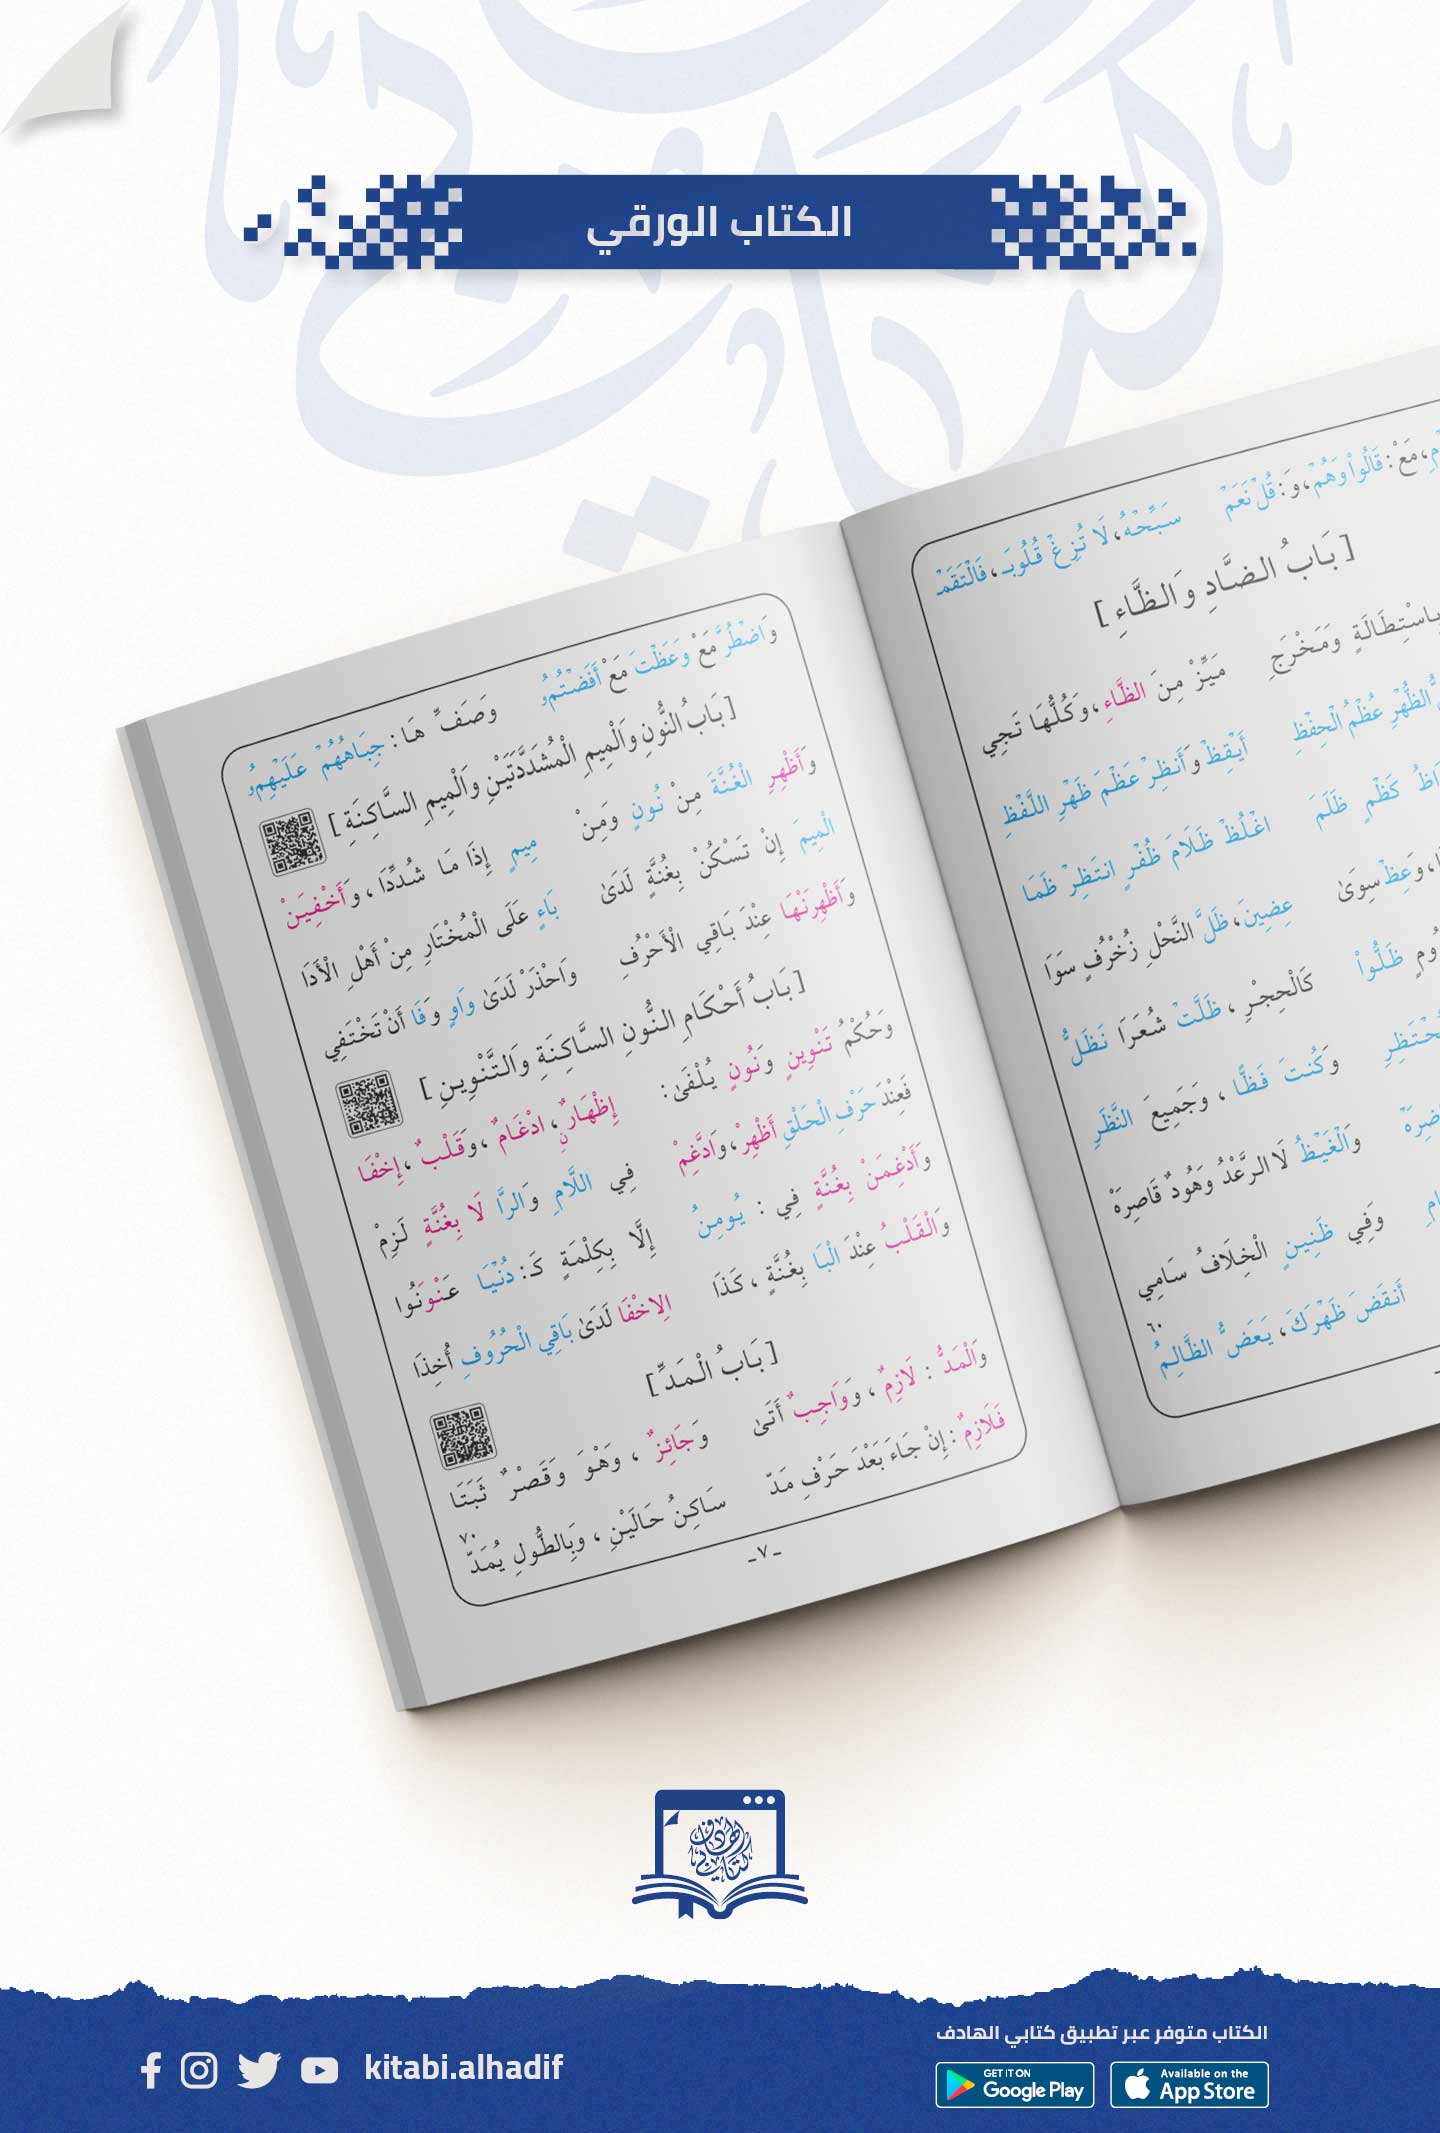 الكتاب الورقي
مَعْ: قَالُواْ وَهُمْ، وَ: قُلْ نَعَمْ سَبِّحْهُ، لَا تُزِغْ قُلُوبَـ، فَالْتَقَمْـ
[بَابُ الضَّادِ وَالظَّاءِ]
بِاسْتِطَالَةٍ وَمَخْرَجِ مَيِّزْ مِنَ الظَّاءِ، وَكُلُّهَا تَجِي
الظُّهْرِ عُظْمُ الْحِفْظِ أَيْقِظْ وَأَنظِرْ عَظْمَ ظَهْرِ اللَّفْظِ
كَظْمٍ ظَلَمَ اغْلُظْ ظَلَامَ ظُفْرٍ انتَظِرْ ظَمَا
وَعِظْ سِوَىٰ عِضِينَ، ظَلَّ النَّحْلِ زُخْرُفٍ سَوَا
ظَلُّواْ كَالْحِجْرِ، ظَلَّتْ شُعَرَا نَظَلُّ
وَكُنتَ فَظًّا، وَجَمِيعَ النَّظَرِ
وَالْغَيْظُ لَا الرَّعْدُ وَهُودٌ قَاصِرَهْ
وَفِي ظَنِينٍ الْخِلَافُ سَامِي
٦٠
أَنقَضَ ظَهْرَكَ، يَعَضُّ الظَّالِمُ
وَاضْطُرَّ مَعْ وَعَظْتَ مَعْ أَفَضْتُمُۥ وَصَفِّ هَا: جِبَاهُهُمْ عَلَيْهِمُۥ
[بَابُ النُّونِ وَالْمِيمِ الْمُشَدَّدَتَيْنِ وَالْمِيمِ السَّاكِنَةِ]
وَأَظْهِرِ الْغُنَّةَ مِنْ نُونٍ وَمِنْ مِيمٍ إِذَا مَا شُدِّدَا، وَأَخْفِيَنْ
الْمِيمَ إِنْ تَسْكُنْ بِغُنَّةٍ لَدَىٰ بَاءٍ عَلَى الْمُخْتَارِ مِنْ أَهْلِ الْأَدَا
وَأَظْهِرَنْهَا عِنْدَ بَاقِي الْأَحْرُفِ وَاحْذَرْ لَدَىٰ وَاوٍ وَفَا أَنْ تَخْتَفِي
[بَابُ أَحْكَامِ النُّونِ السَّاكِنَةِ وَالتَّنْوِينِ]
وَحُكْمُ تَنْوِينٍ وَنُونٍ يُلْفَىٰ: إِظْهَارٌنِ، ادْغَامٌ، وَقَلْبٌ، إِخْفَا
فَعِنْدَ حَرْفِ الْحَلْقِ أَظْهِرْ، وَادَّغِمْ فِي اللَّامِ وَالرَّا لَا بِغُنَّةٍ لَزِمْ
وَأَدْغِمَنْ بِغُنَّةٍ فِي: يُومِنُ إِلَّا بِكِلْمَةٍ كَـ: دُنْيَا عَنْوَنُوا
وَالْقَلْبُ عِنْدَ الْبَا بِغُنَّةٍ، كَذَا الِاخْفَا لَدَىٰ بَاقِي الْحُرُوفِ أُخِذَا
[بَابُ الْمَدِّ]
وَالْمَدُّ: لَازِمٌ، وَوَاجِبٌ أَتَىٰ وَجَائِزٌ، وَهْوَ وَقَصْرٌ ثَبَتَا
٧٠
فَلَازِمٌ: إِنْ جَاءَ بَعْدَ حَرْفِ مَدّ سَاكِنُ حَالَيْنِ، وَبِالطُّولِ يُمَدّ
-٧-
كتابي الهادف
الكتاب متوفر عبر تطبيق كتابي الهادف
kitabi.alhadif
GET IT ON Google Play
Available on the App Store